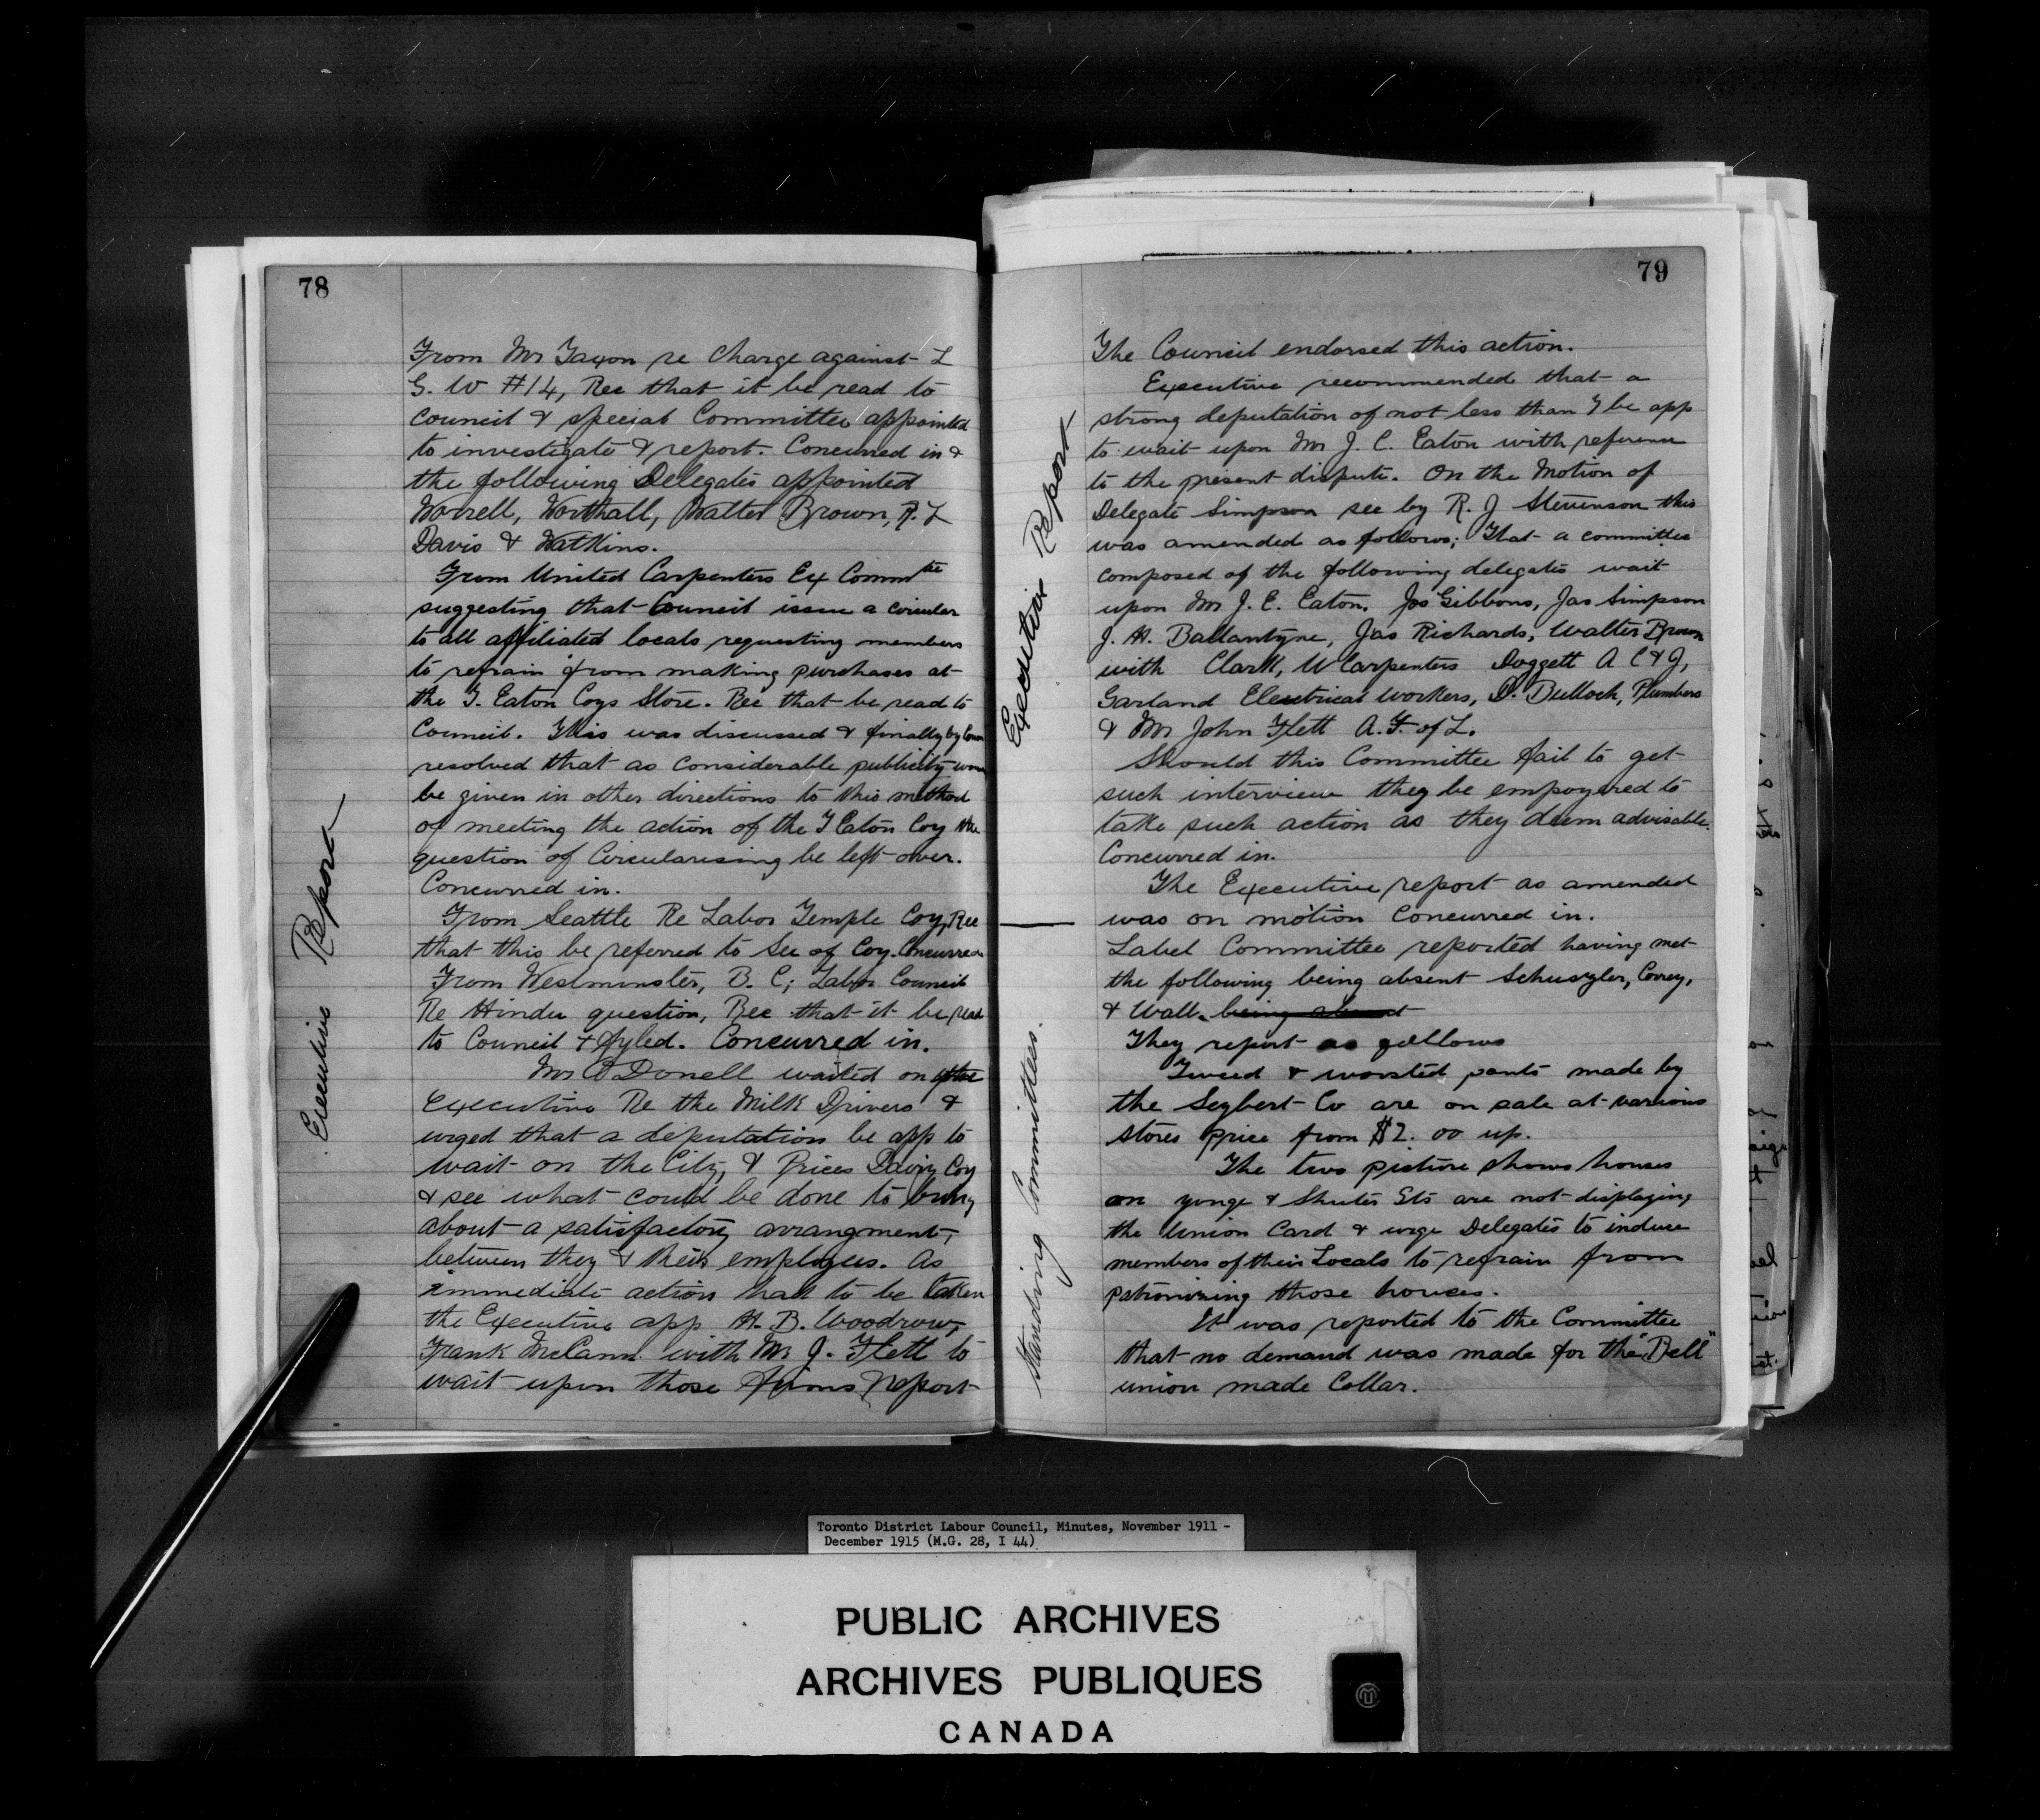 78
Executive Report
From Mr Taxon re Charge against L
G. W #14, Rec that it be read to
Council & special Committee appointed
to investigate & report. Concurred in &
the following Delegates appointed
Worrell, Worthall, Walter Brown, R. L
Davis & Watkins.
From United Carpenters Ex Commtte
suggesting that Council issue a circular
to all affiliated locals requesting members
to refrain from making purchases at
the T. Eaton Coys Store. Rec that be read to
Council. This was discussed & finally by
resolved that as considerable publicity
be given in other directions to this method
of meeting the action of the T Eaton Coy the
question of Circularising be left over.
Concurred in.
From Seattle Re Labor Temple Coy, Rec
that this be referred to Sec of Coy. Concurred
From Westminster, B. C; Labor Council
Re Hindu question, Rec that it be read
to Council & Fyled. Concurred in.
Mr O Donell waited on the
Executive Re the Milk Drivers &
urged that a deputation be app to
wait on the City, & Prices Dairy Coy
& see what could be done to bring
about a satisfactory arrangment,
between they & their employees. As
immediate action had to be taken
the Executive app H. B. Woodrow,
Frank McCann with Mr J. Flett to
wait upon those firms & report
79
Executive Report
Standing Committees.
The Council endorsed this action.
Executive recommended that a
strong deputation of not less than 7 be app
to wait upon Mr J. C. Eaton with reference
to the present dispute. On the Motion of
Delegate Simpson sec by R. J Stevenson this
was amended as follows; That a committee
composed of the following delegates wait
upon Mr J. C. Eaton. Jos Gibbons, Jas Simpson
J. H. Ballantyne, Jas Richards, Walter Brown
with Clark, U Carpenters Doggett A C & J,
Garland Electrical workers, D. Bullock, Plumbers
& Mr John Flett A. F. of L.
Should this Committee fail to get
such interview they be empoyered to
take such action as they deem advisable.
Concurred in.
The Executive report as amended
was on motion Concurred in.
Label Committee reported having met
the following being absent Schuyler, Correy,
& Wall. being absent
They report as follows
Tweed & worsted pants made by
the Seybert Co are on sale at various
stores price from $2.00 up.
The two picture shows houses
on yonge & Shuter Sts are not displaying
the Union Card & urge Delegates to induce
members of their Locals to refrain from
patronizing those houses.
It was reported to the Committee
that no demand was made for the "Bell"
union made Collar.
Toronto District Labour Council, Minutes, November 1911 -
December 1915 (M.G. 28, I 44)
PUBLIC ARCHIVES
ARCHIVES PUBLIQUES
CANADA